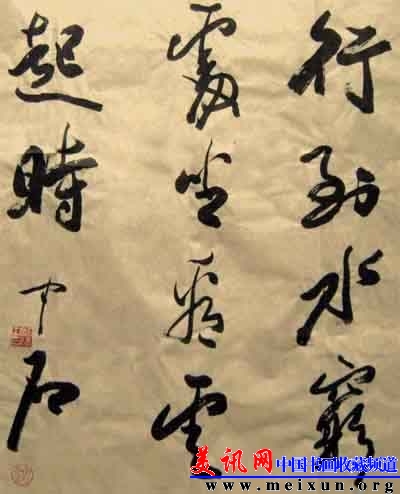 行到水窮
處坐看雲
起時 中石
美讯网 中国书画收藏频道
www.meixun.org